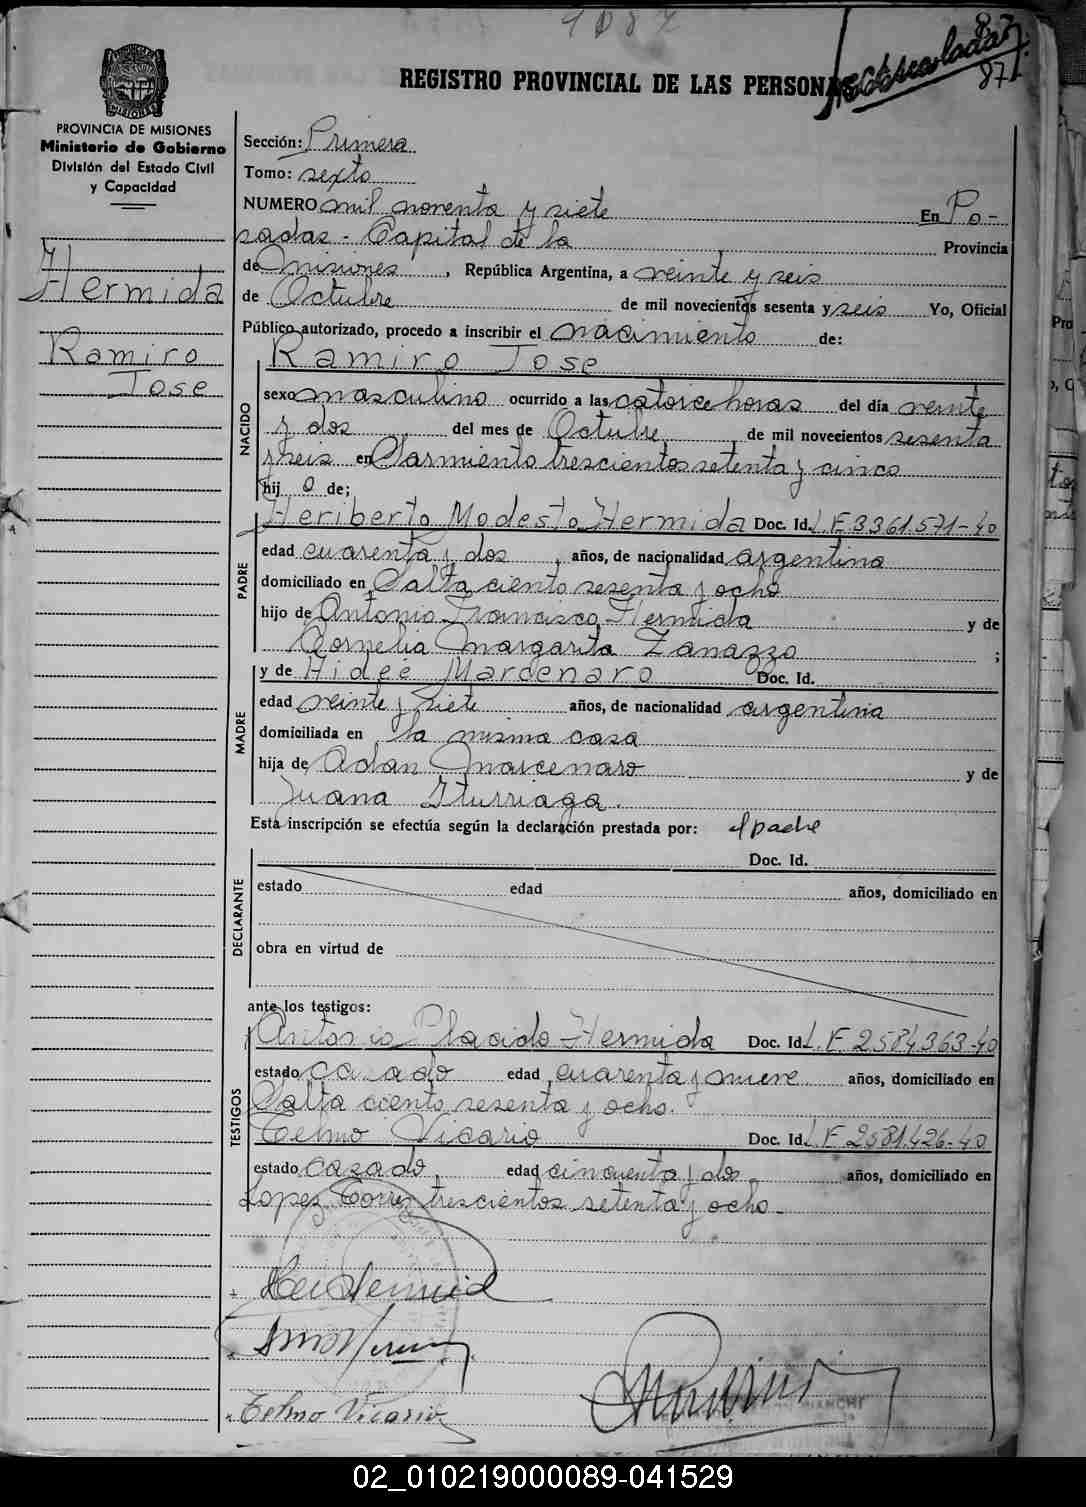 1087
87
87
REGISTRO PROVINCIAL DE LAS PERSONAS
PROVINCIA DE MISIONES
Ministerio de Gobierno
División del Estado Civil
y Capacidad
Hermida
Ramiro
Jose
Sección: Primera
Tomo: sexto
NUMERO mil noventa y siete En Po-
sadas - Capital de la Provincia
de Misiones, República Argentina, a veinte y seis
de Octubre de mil novecientos sesenta y seis Yo, Oficial
Público autorizado, procedo a inscribir el nacimiento de:
Ramiro Jose
NACIDO
sexo masculino ocurrido a las catorce horas del día veinte
y dos del mes de Octubre, de mil novecientos sesenta
y seis en Sarmiento trescientos setenta y cinco
hij o de;
PADRE
Heriberto Modesto Hermida Doc. Id. L.E 3361.571-40
edad cuarenta y dos, años, de nacionalidad argentina
domiciliado en Salta ciento sesenta y ocho
hijo de Antonio Francisco Hermida y de
Cornelia Margarita Zanazzo ;
MADRE
y de Hideé Marcenaro Doc. Id.
edad veinte y siete años, de nacionalidad argentina
domiciliada en la misma casa
hija de Adan Marcenaro y de
Juana Iturriaga.
Esta inscripción se efectúa según la declaración prestada por: el padre
DECLARANTE
Doc. Id.
estado edad años, domiciliado en
obra en virtud de
ante los testigos:
TESTIGOS
Antonio Placido Hermida Doc. Id. L.E 2584.363-40
estado ca ado edad cuarenta y nueve años, domiciliado en
Salta ciento sesenta y ocho.
Telmo Vicario Doc. Id. L.E 2581.426-40
estado casado, edad cincuenta y dos años, domiciliado en
Lopez Torres trescientos setenta y ocho-
Telmo Vicario
02_010219000089-041529